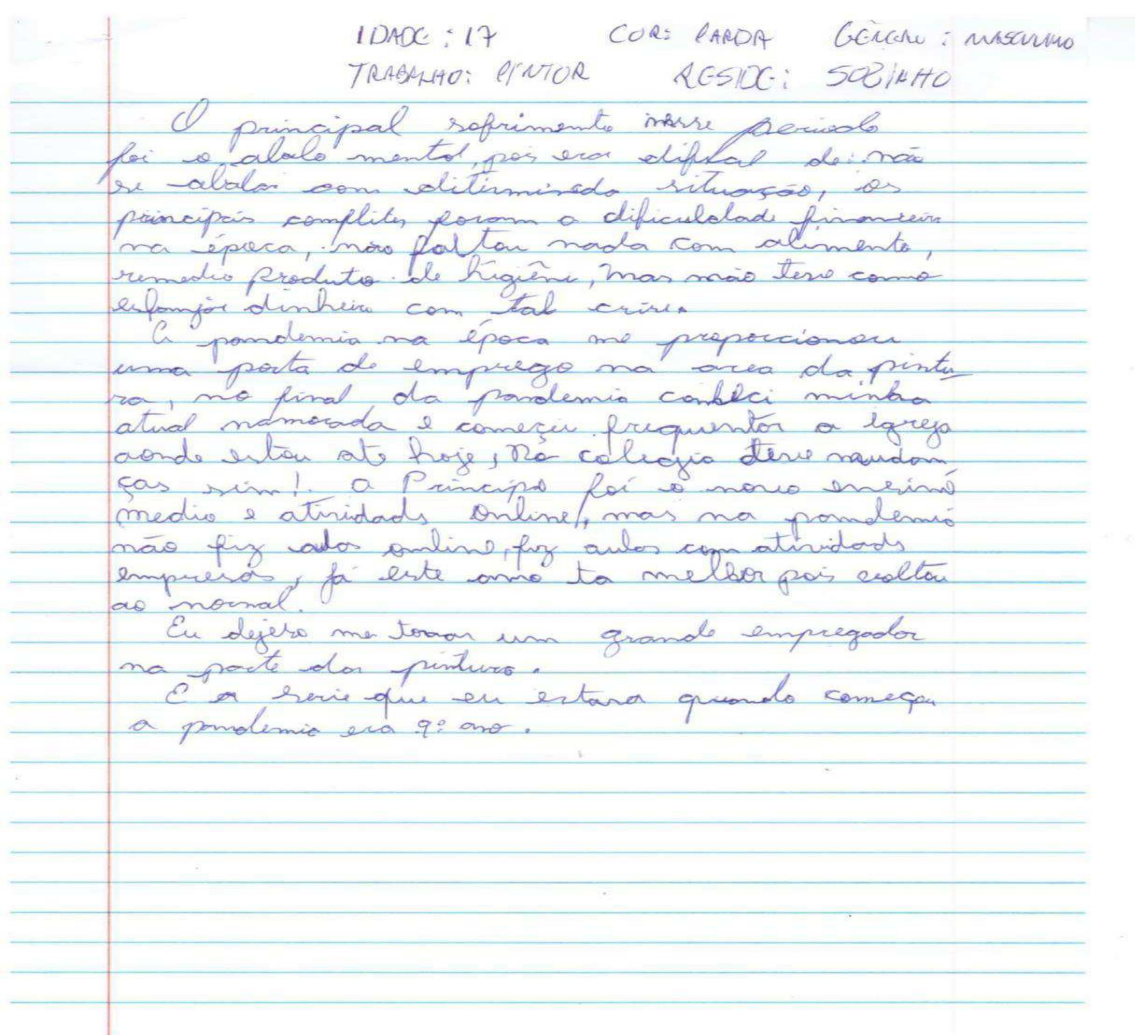 IDADE: 17 COR: PARDA GÊNERO: MASCULINO
TRABALHO: PINTOR RESIDE: SOZINHO
O principal sofrimento nesse periodo
foi o abalo mental, pois era difical de não
se abalar com ditirminada situação, os
principais conflitos foram a dificuldade financeira
na época, não faltou nada com alimento,
remedio produto de higiêne, mas não teve como
esfanjar dinheiro com tal crise.
A pandemia na época me proporcionou
uma porta de emprego na area da pintu-
ra, no final da pandemia conheci minha
atual namorada e começei frequentar a igreja
aonde estou ate hoje, No colegio teve mudan
ças sim! O Principal foi o novo ensino
medio e atividads online, mas na pandemia
não fiz aulas online, fiz aulas com atividads
empresas, já este ano ta melhor pois voltou
ao normal.
Eu dejeso me tornar um grande empregador
na parte das pinturas.
E a serie que eu estava quando começou
a pandemia era 9º ano.